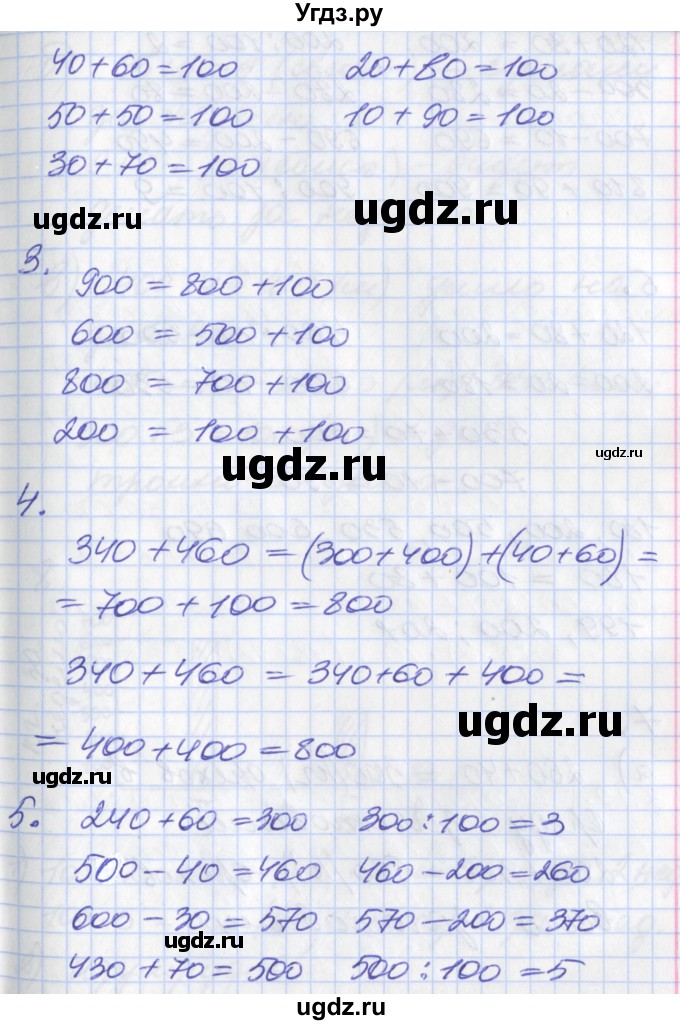 Угдз.ру
40+60=100 20+80=100
50+50=100 10+90=100
30+70=100
ugdz.ru ugdz.ru
3.
900 = 800+100
600 = 500+100
800 = 700+100
200 = 100+100
ugdz.ru
ugdz.ru
4.
340+460=(300+400)+(40+60)=
=700+100=800
340+460=340+60+400=
ugdz.ru
=400+400=800
ugdz.ru
5. 240+60=300 300:100=3
500-40=460 460-200=260
600-30=570 570-200=370
ugdz.ru ugdz.ru
430+70=500 500:100=5
ugdz.ru